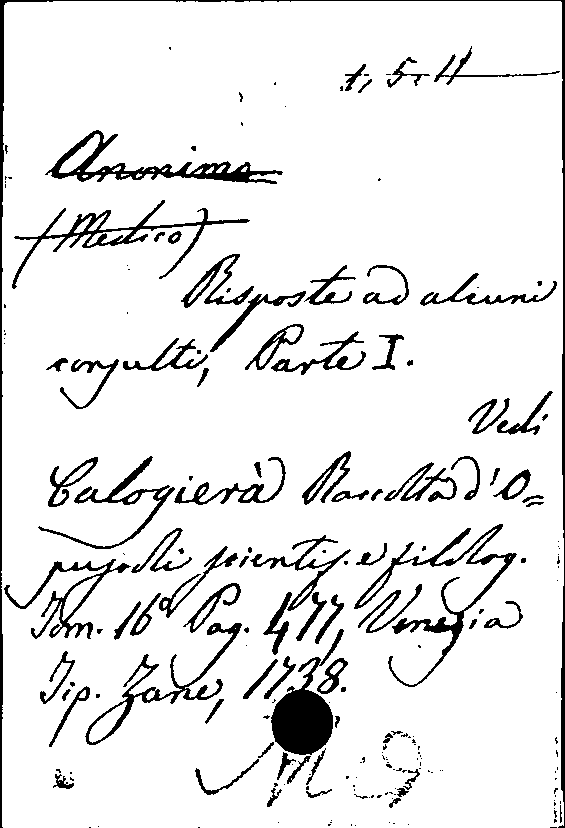 1, 5. 11
Anonimo
(Medico)
Risposte ad alcuni
consulti, Parte I.
Vedi
Calogierà Raccolta d'O=
puscoli scientif. e filolog.
Tom. 16º Pag. 477, Venezia
Tip. Zane, 1738.